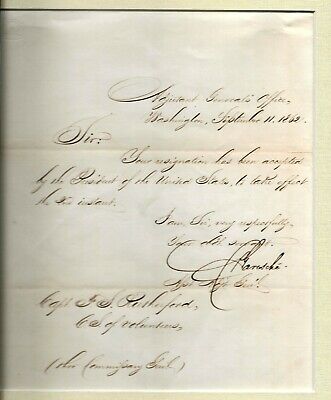 Adjutant General's Office,
Washington, September 11, 1862.
Sir:
Your resignation has been accepted
by the President of the United States, to take effect
the instant.
I am, Sir, very respectfully,
Your obt. servant.
Garesché
Asst. Adjt. Genl.
Capt. J. S. Rutherford,
C.S. of Volunteers,
(thro' Commissary Genl.)